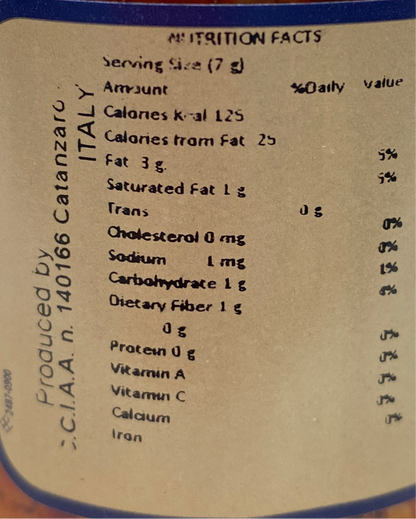 NUTRITION FACTS
Serving Size (7 g)
Amount %Daily Value
Calories Kcal 125
Calories from Fat 25
Fat 3 g. 5%
Saturated Fat 1 g 5%
Trans 0 g
Cholesterol 0 mg 0%
Sodium 1 mg 0%
Carbohydrate 1 g 1%
Dietary Fiber 1 g 4%
0 g
Protein 0 g
Vitamin A
Vitamin C
Calcium
Iron
Produced by
C.I.A.A. n. 140166 Catanzaro
ITALY